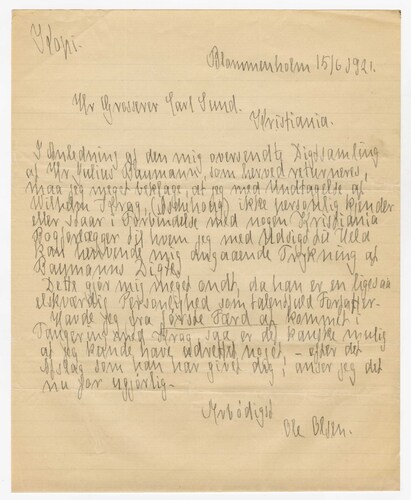 Kopi.
Blommenholm 15/6 1921.
Hr Grosserer Carl Lund.
Kristiania.
I Anledning af den mig oversendte Digtsamling
af Hr. Julius Baumann, som herved returneres,
maa jeg meget beklage at jeg med Undtagelse af
Wilhelm Krag, ikke personlig kjender
eller staar i Forbindelse med nogen Kristiania
Bogforlægger til hvem jeg med Udsigt til Held
kan henvende mig angaaende Trykning af
Baumanns Digte.
Dette gjør mig meget ondt, da han er en ligesaa
elskværdig Personlighed som talentfuld Forfatter.
Havde jeg fra første Færd af kommet i
med Krag, saa er det kanske mulig
at jeg kunde have udrettet noget – efter det
Afslag som han har givet dig, anser jeg det
nu for ugjørlig.
Ærbødigst
Ole Olsen.